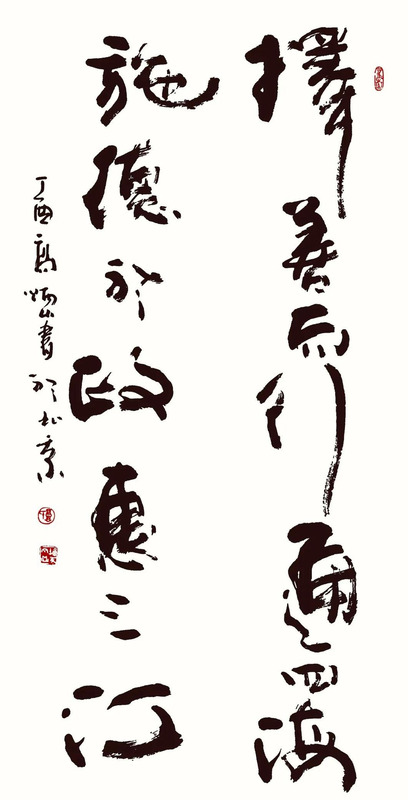 擇善而行遍四海
施德於政惠三河
丁酉高書於北京